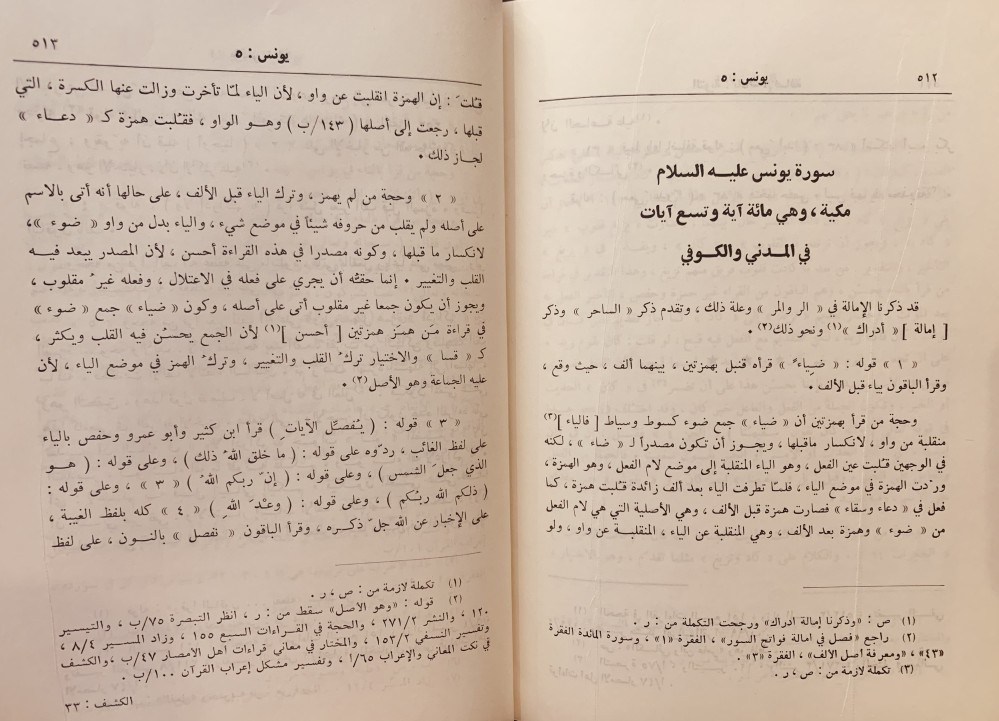 ٥١٢
يونس : ٥
سورة يونس عليه السلام
مكية ، وهي مائة آية وتسع آيات
في المدني والكوفي
قد ذكرنا الإمالة في « الر والمر » وعلة ذلك ، وتقدم ذكر « الساحر » وذكر
[ إمالة ] « أدراك »(١) ونحو ذلك(٢) .
« ١ » قوله : « ضياءً » قرأه قنبل بهمزتين ، بينهما ألف ، حيث وقع ،
وقرأ الباقون بياء قبل الألف .
وحجة من قرأ بهمزتين أن « ضياء » جمع ضوء كسوط وسياط [ فالياء ](٣)
منقلبة من واو ، لانكسار ماقبلها ، ويجوز أن تكون مصدراً لـ « ضاء » ، لكنه
في الوجهين قُلبت عين الفعل ، وهو الياء المنقلبة إلى موضع لام الفعل ، وهو الهمزة ،
وردت الهمزة في موضع الياء ، فلمّا تطرفت الياء بعد ألف زائدة قُلبت همزة ، كما
فعل في « دعاء وسقاء » فصارت همزة قبل الألف ، وهي الأصلية التي هي لام الفعل
من « ضوء » وهمزة بعد الألف ، وهي المنقلبة عن الياء ، المنقلبة عن واو ، ولو
(١) ص : «وذكرنا إمالة ادراك» ورجحت التكملة من : ر .
(٢) راجع «فصل في امالة فواتح السور» ، الفقرة «١» ، وسورة المائدة الفقرة
«٤٣» ، «ومعرفة أصل الألف» ، الفقرة «٣» .
(٣) تكملة لازمة من : ص ، ر .
٥١٣
يونس : ٥
قُلتَ : إن الهمزة انقلبت عن واو ، لأن الياء لمّا تأخرت وزالت عنها الكسرة ، التي
قبلها ، رجعت إلى أصلها ( ١٤٣/ب ) وهو الواو ، فقُلبت همزة كـ « دعاء »
لجاز ذلك .
« ٢ » وحجة من لم يهمز ، وترك الياء قبل الألف ، على حالها أنه أتى بالاسم
على أصله ولم يقلب من حروفه شيئاً في موضع شيء ، والياء بدل من واو « ضوء » ،
لانكسار ما قبلها ، وكونه مصدرا في هذه القراءة أحسن ، لأن المصدر يبعد فيه
القلب والتغيير . إنما حقّه أن يجري على فعله في الاعتلال ، وفعله غيرُ مقلوب ،
ويجوز أن يكون جمعا غير مقلوب أتى على أصله ، وكون « ضياء » جمع « ضوء »
في قراءة مَن همَز همزتين [ أحسن ](١) لأن الجمع يحسُن فيه القلب ويكثر ،
كـ « قسا » والاختيار تركُ القلب والتغيير ، وتركُ الهمز في موضع الياء ، لأن
عليه الجماعة وهو الأصل(٢) .
« ٣ » قوله : ( يُفصّل الآياتِ ) قرأ ابن كثير وأبو عمرو وحفص بالياء
على لفظ الغائب ، ردّوه على قوله : ( ما خلق اللهُ ذلك ) ، وعلى قوله : ( هو
الذي جعلَ الشمس ) ، وعلى قوله : ( إنّ ربكم اللهُ ) « ٣ » ، وعلى قوله :
( ذلكم اللهُ ربُّكم ) ، وعلى قوله : ( وعْدَ اللهِ ) « ٤ » كله بلفظ الغيبة ،
على الإخبار عن الله جلّ ذكره ، وقرأ الباقون « نفصل » بالنون ، على لفظ
(١) تكملة لازمة من : ص ، ر .
(٢) قوله : «وهو الأصل» سقط من : ر ، انظر التبصرة ٧٥/ب ، والتيسير
١٢٠ ، والنشر ٢٧١/٢ ، والحجة في القراءات السبع ١٥٥ ، وزاد المسير ٨/٤ ،
وتفسير النسفي ١٥٣/٢ ، والمختار في معاني قراءات أهل الامصار ٤٧/ب ، والكشف
في نكت المعاني والإعراب ٦٥/أ ، وتفسير مشكل إعراب القرآن ١٠٠/ب .
الكشف : ٣٣